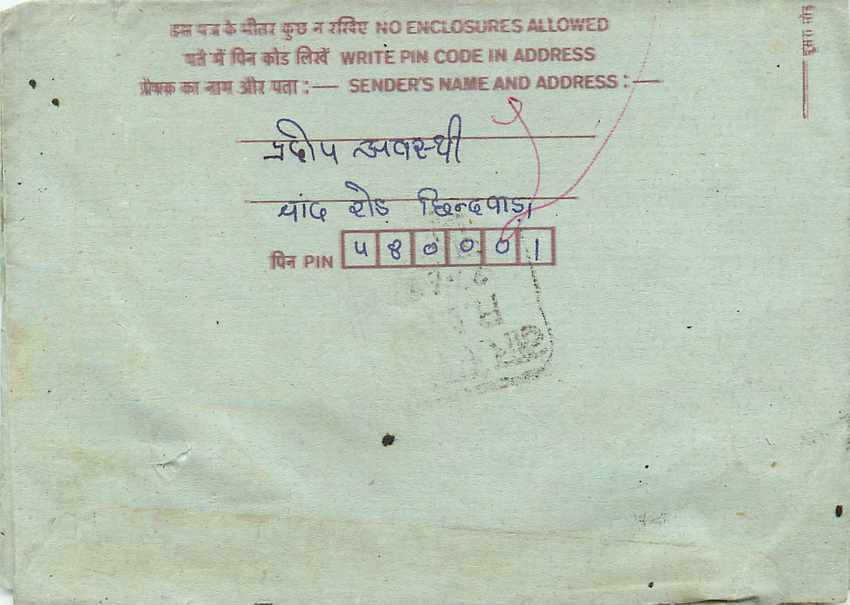 इस पत्र के भीतर कुछ न रखिए NO ENCLOSURES ALLOWED
पते में पिन कोड लिखें WRITE PIN CODE IN ADDRESS
प्रेषक का नाम और पता :— SENDER'S NAME AND ADDRESS :—
प्रदीप अवस्थी
चांद रोड छिन्दवाड़ा
पिन PIN ५४०००1
दूसरा मोड़